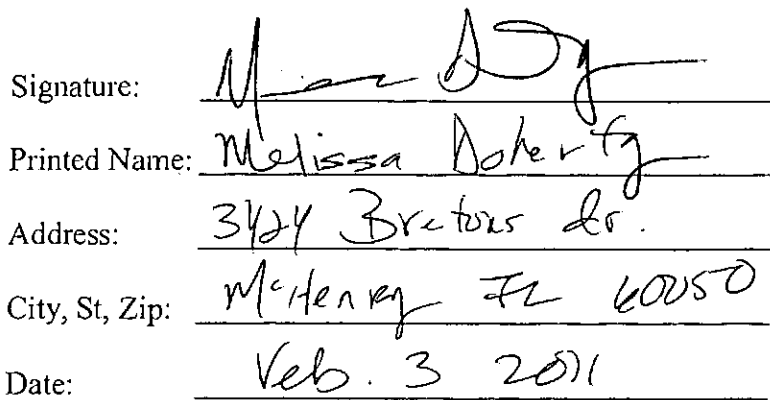 Signature:
Printed Name: Melissa Doherty
Address: 3424 Dr.
City, St, Zip: McHenry IL 60050
Date: Feb. 3 2011